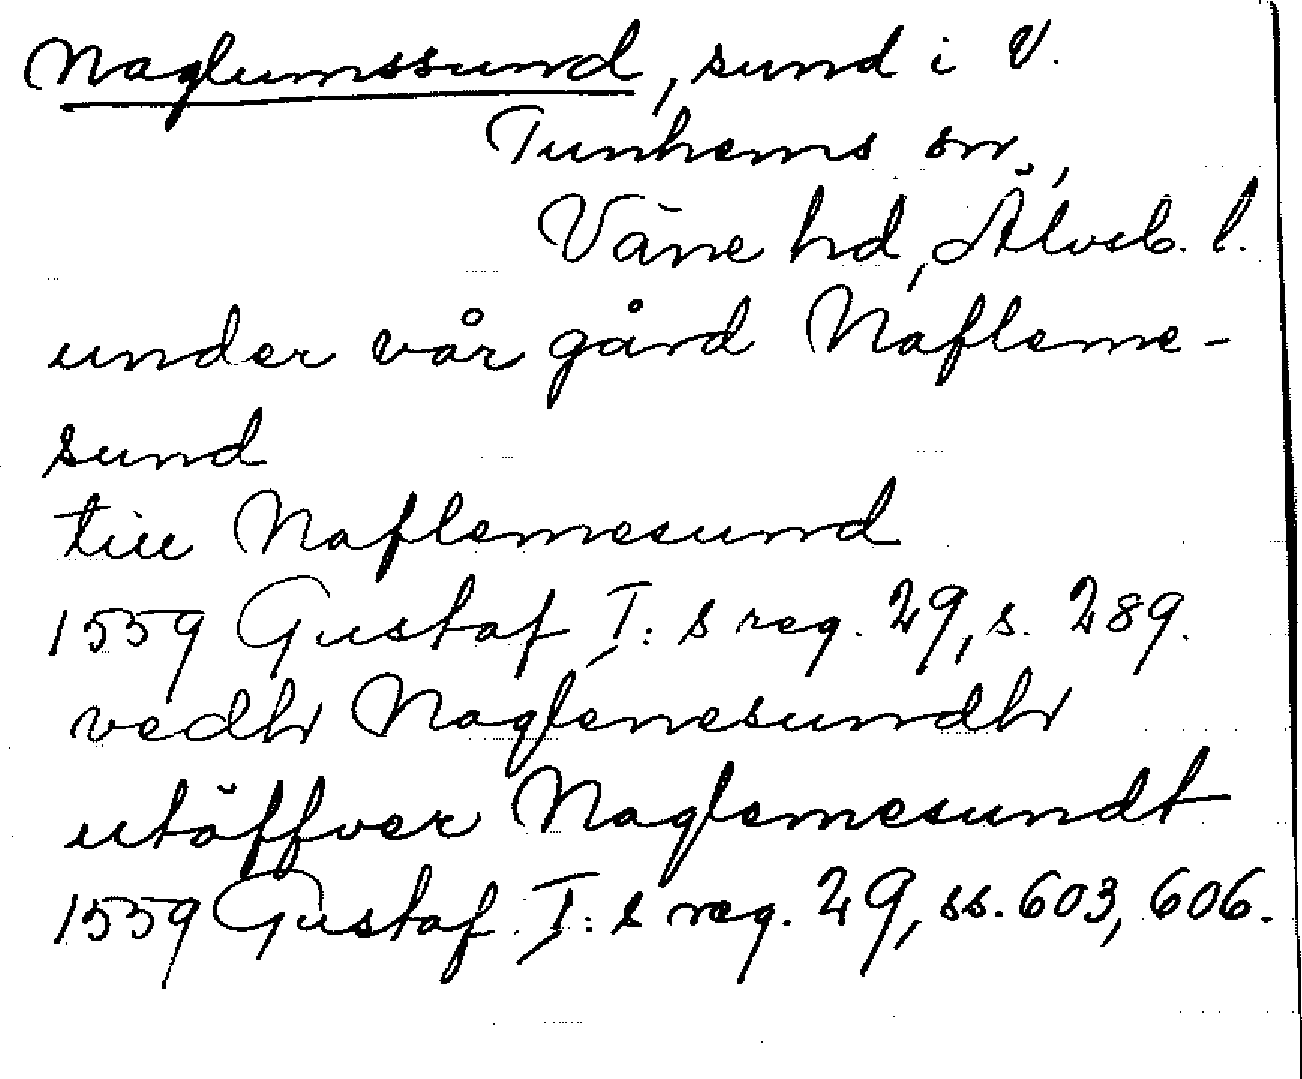 Naglumssund, sund i V.
Tunhems sn.,
Väne hd, Älvsb. l.
under vår gård Nafleme-
sund
till Naflemesund
1559 Gustaf I:s reg. 29, s. 289.
vedht Naglemesundht
utöffver Naglemesundt
1559 Gustaf I:s reg. 29, ss. 603, 606.